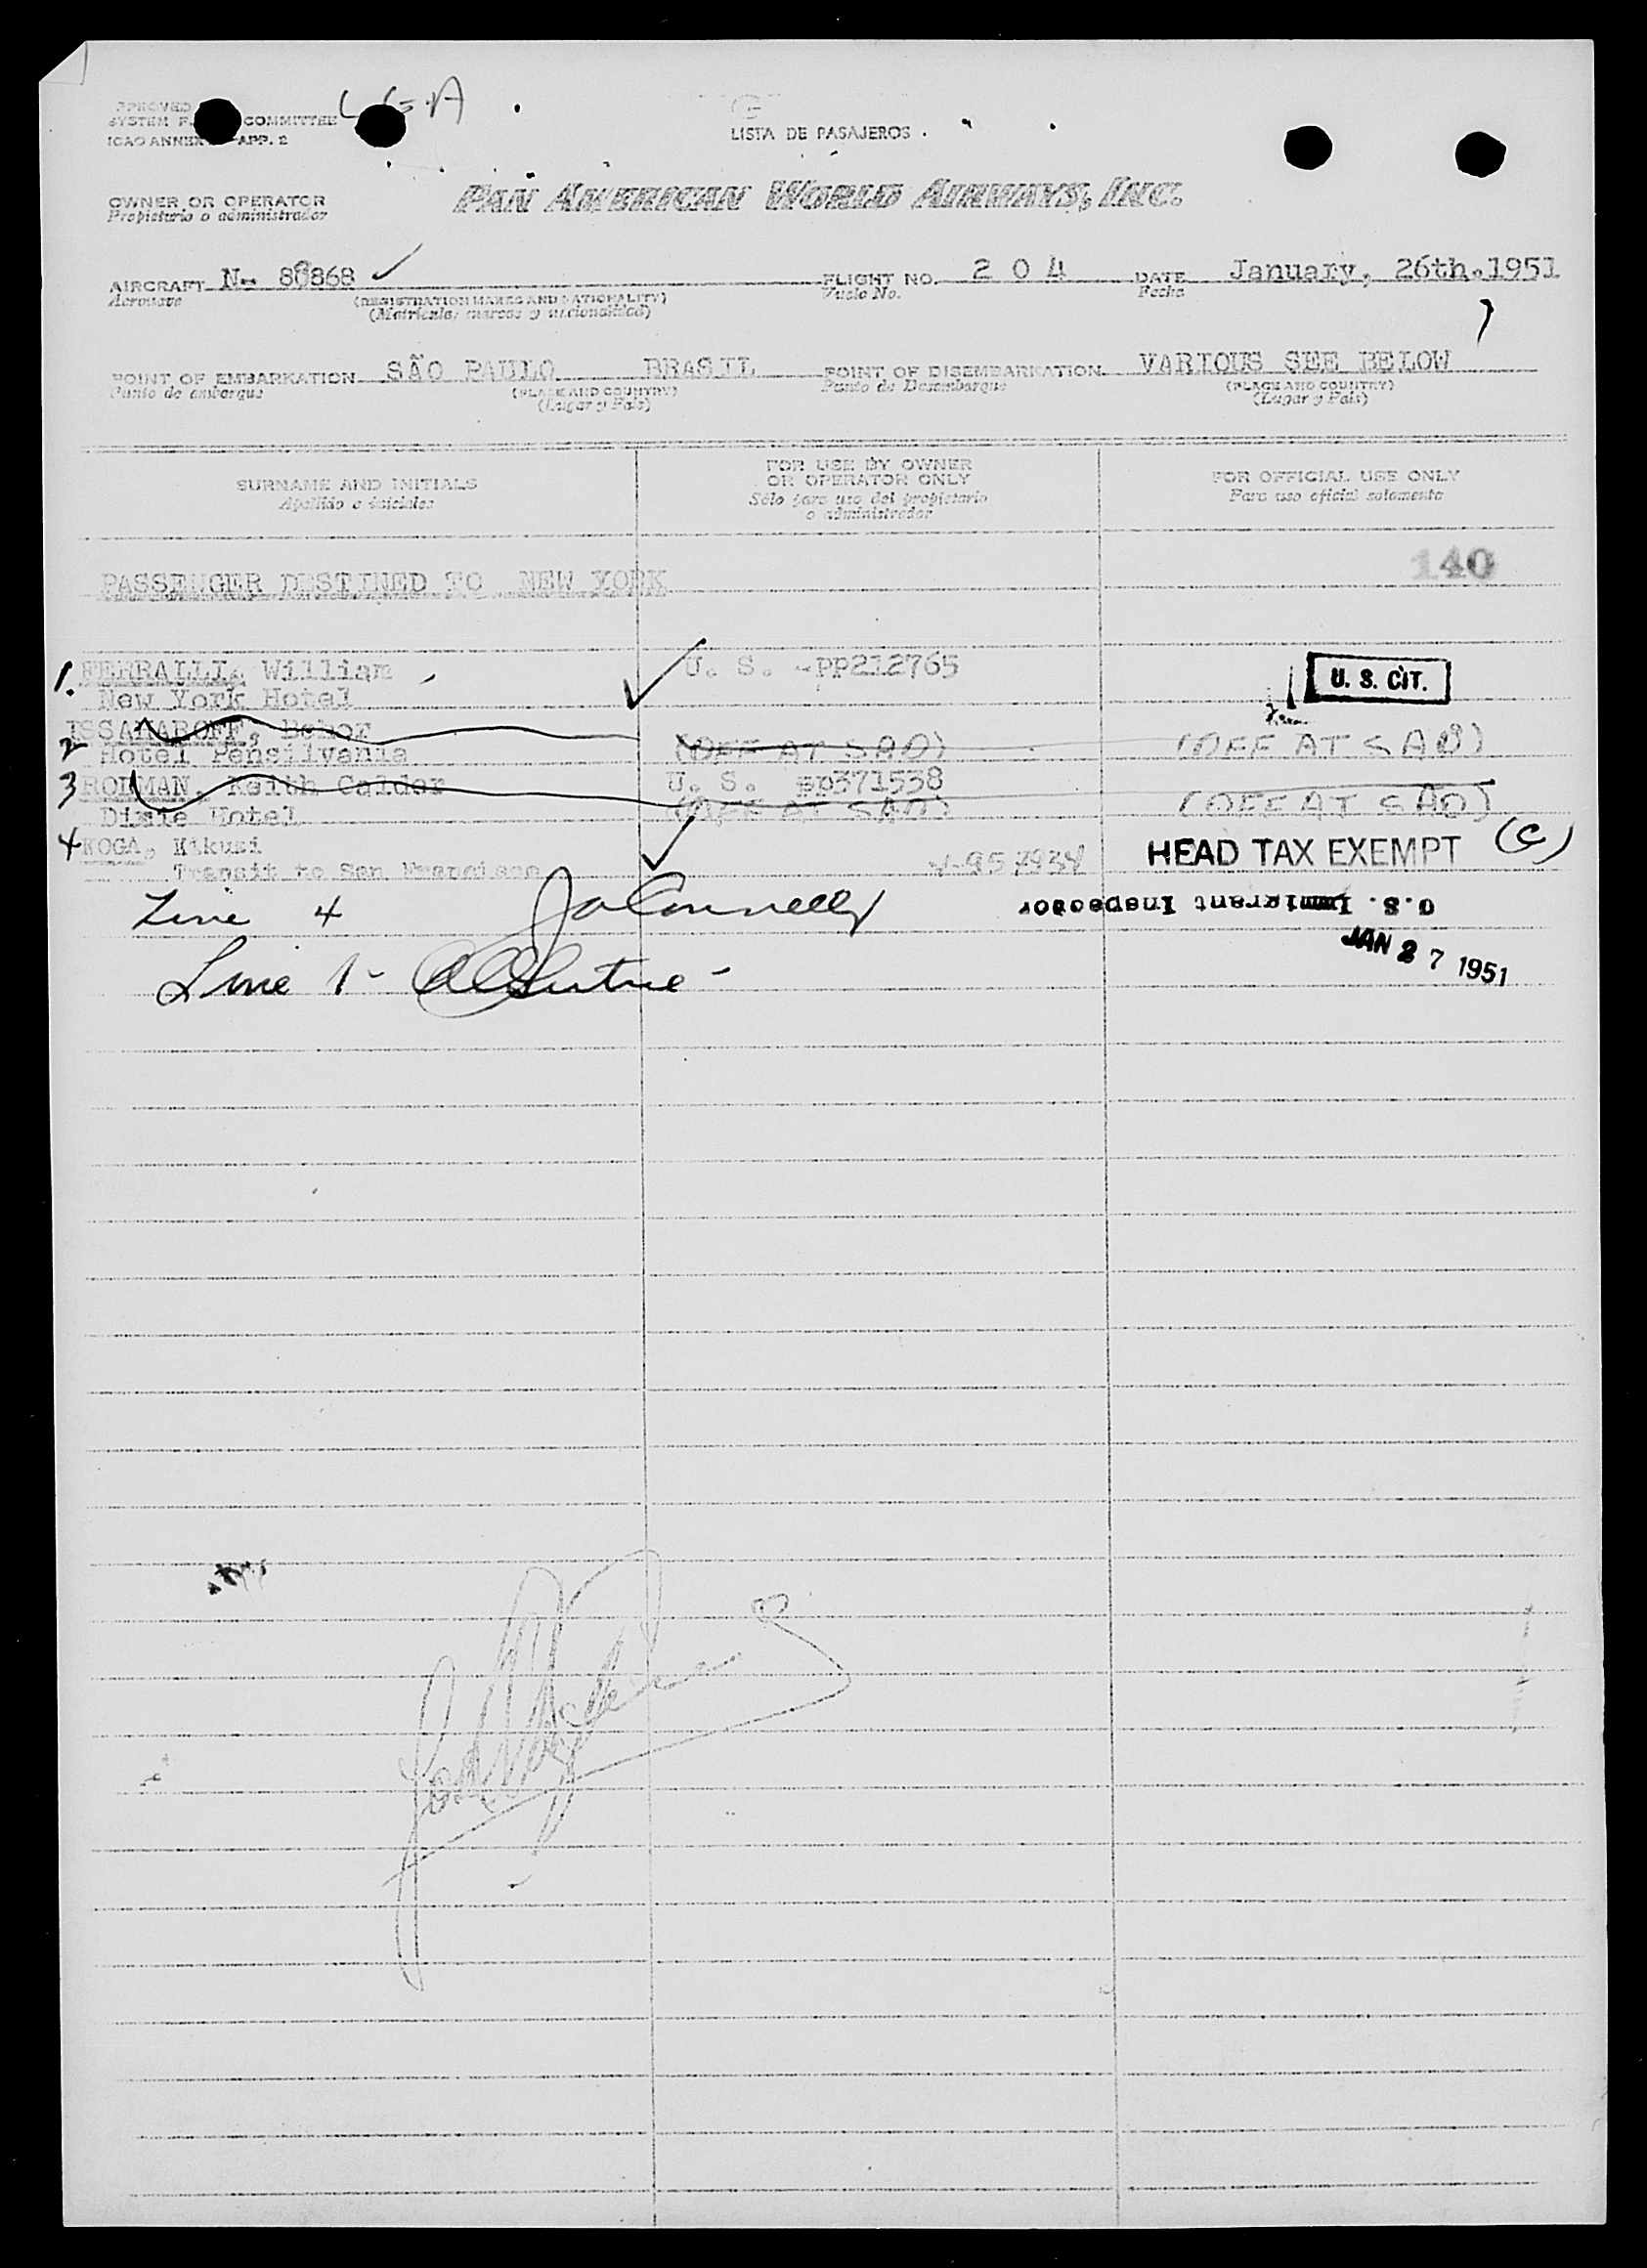 LGA
SYSTEM COMMITTEE
ICAO ANNEX APP. 2
LISTA DE PASAJEROS
OWNER OR OPERATOR
Propietario o administrador
PAN AMERICAN WORLD AIRWAYS, INC.
AIRCRAFT N- 88868 FLIGHT NO. 2 0 4 DATE January, 26th.1951
Aeronave (REGISTRATION MARKS AND NATIONALITY) Vuelo No. Fecha
(Matricula, marcas y nacionalidad)
POINT OF EMBARKATION SÃO PAULO BRASIL POINT OF DISEMBARKATION VARIOUS SEE BELOW
Punto de embarque (PLACE AND COUNTRY) Punto de Desembarque (PLACE AND COUNTRY)
(Lugar y País) (Lugar y País)
SURNAME AND INITIALS FOR USE BY OWNER OR OPERATOR ONLY FOR OFFICIAL USE ONLY
Apellido e iniciales Sólo para uso del propietario o administrador Para uso oficial solamente
140
PASSENGER DESTINED TO NEW YORK
1. FERRAILLI, William U. S. -pp212765 U. S. CIT.
New York Hotel
ISSAHAROFF, Behor
2 Hotel Pensilvania (OFF AT SAO) (OFF AT SAO)
3 RODMAN, Keith Calder U. S. pp371538
Dixie Hotel (OFF AT SAO) (OFF AT SAO)
4 KOGA, Kikumi HEAD TAX EXEMPT (C)
Transit to San Francisco
Line 4 U.S. Immigrant Inspector
JAN 27 1951
Line 1-